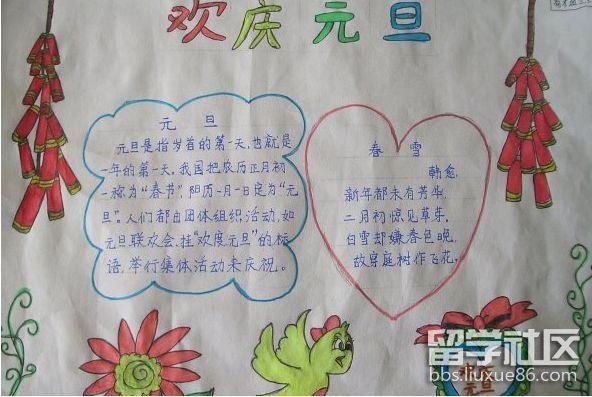 欢庆元旦
元旦
元旦是指岁首的第一天,也就是
一年的第一天,我国把农历正月初
一称为“春节”,阳历一月一日定为“元
旦”。人们都由团体组织活动,如
元旦联欢会、挂“欢度元旦”的标
语,举行集体活动来庆祝。
春雪
韩愈
新年都未有芳华,
二月初惊见草芽。
白雪却嫌春色晚,
故穿庭树作飞花。
元旦
留学社区
bbs.liuxue86.com